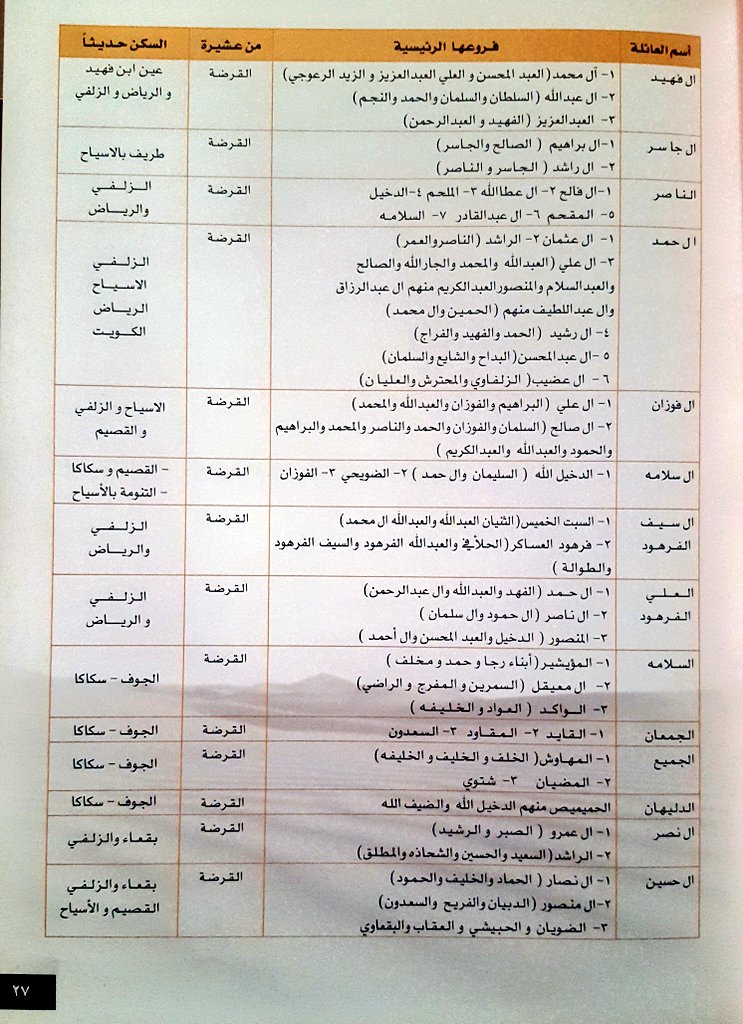 أسم العائلة فروعها الرئيسية من عشيرة السكن حديثاً
ال فهيد ١- آل محمد( العبد المحسن و العلي العبدالعزيز و الزيد الرعوجي) القرضة عين ابن فهيد
٢- ال عبدالله (السلطان والسلمان والحمد والنجم) و الرياض و الزلفي
٣- العبدالعزيز (الفهيد و العبدالرحمن)
ال جاسر ١-ال براهيم ( الصالح والجاسر) القرضة طريف بالاسياح
٢- ال راشد ( الجاسر و الناصر)
الناصر ١-ال فالح ٢- ال عطاالله ٣- الملحم ٤-الدخيل القرضة الزلفي
٥- المقحم ٦- ال عبدالقادر ٧- السلامه والرياض
ال حمد ١- ال عثمان ٢- الراشد (الناصروالعمر) القرضة
٣- ال علي (العبدالله والمحمد والجارالله والصالح الزلفي
والعبدالسلام والمنصورالعبدالكريم منهم ال عبدالرزاق الاسياح
وال عبداللطيف منهم (الحمين وال محمد) الرياض
٤- ال رشيد ( الحمد والفهيد والفراج) الكويت
٥ -ال عبدالمحسن(البداح والشايع والسلمان)
٦ - ال عضيب( الزلفاوي والمحترش والعليان)
ال فوزان ١- ال علي ( البراهيم والفوزان والعبدالله والمحمد) القرضة الاسياح و الزلفي
٢- ال صالح (السلمان والفوزان والحمد والناصر والمحمد والبراهيم و القصيم
والحمود والعبدالله والعبدالكريم )
ال سلامه ١- الدخيل الله ( السليمان وال حمد ) ٢- الضويحي ٣- الفوزان القرضة - القصيم و سكاكا
- التنومة بالأسياح
ال سيف ١- السبت الخميس(الثنيان العبدالله والعبدالله ال محمد) القرضة الزلفي
الفرهود ٢- فرهود العساكر (الحلافي والعبدالله الفرهود والسيف الفرهود والرياض
والطوالة )
العلي ١- ال حمد (الفهد والعبدالله وال عبدالرحمن) القرضة الزلفي
الفرهود ٢- ال ناصر ( ال حمود وال سلمان ) و الرياض
٣- المنصور ( الدخيل والعبد المحسن وال أحمد )
السلامه ١- المؤيشير( أبناء رجا و حمد و مخلف ) القرضة
٢- ال معيقل (السمرين و المفرج و الراضي) الجوف - سكاكا
٣- الواكد ( العواد و الخليفه )
الجمعان ١- القايد ٢- المقاود ٣- السعدون القرضة الجوف - سكاكا
الجميع ١- المهاوش( الخلف و الخليف و الخليفه) القرضة الجوف - سكاكا
٢- المضيان ٣- شتوي
الدليهان الحميميص منهم الدخيل الله والضيف الله القرضة الجوف - سكاكا
ال نصر ١- ال عمرو ( الصبر و الرشيد) القرضة بقعاء والزلفي
٢- الراشد( السعيد والحسين والشحاذه والمطلق)
ال حسين ١- ال نصار ( الحماد والخليف والحمود) القرضة بقعاء والزلفي
٢-ال منصور ( الدبيان والفريح والسعدون) القصيم و الأسياح
٣- الضويان و الحبيشي و العقاب والبقعاوي
٢٧